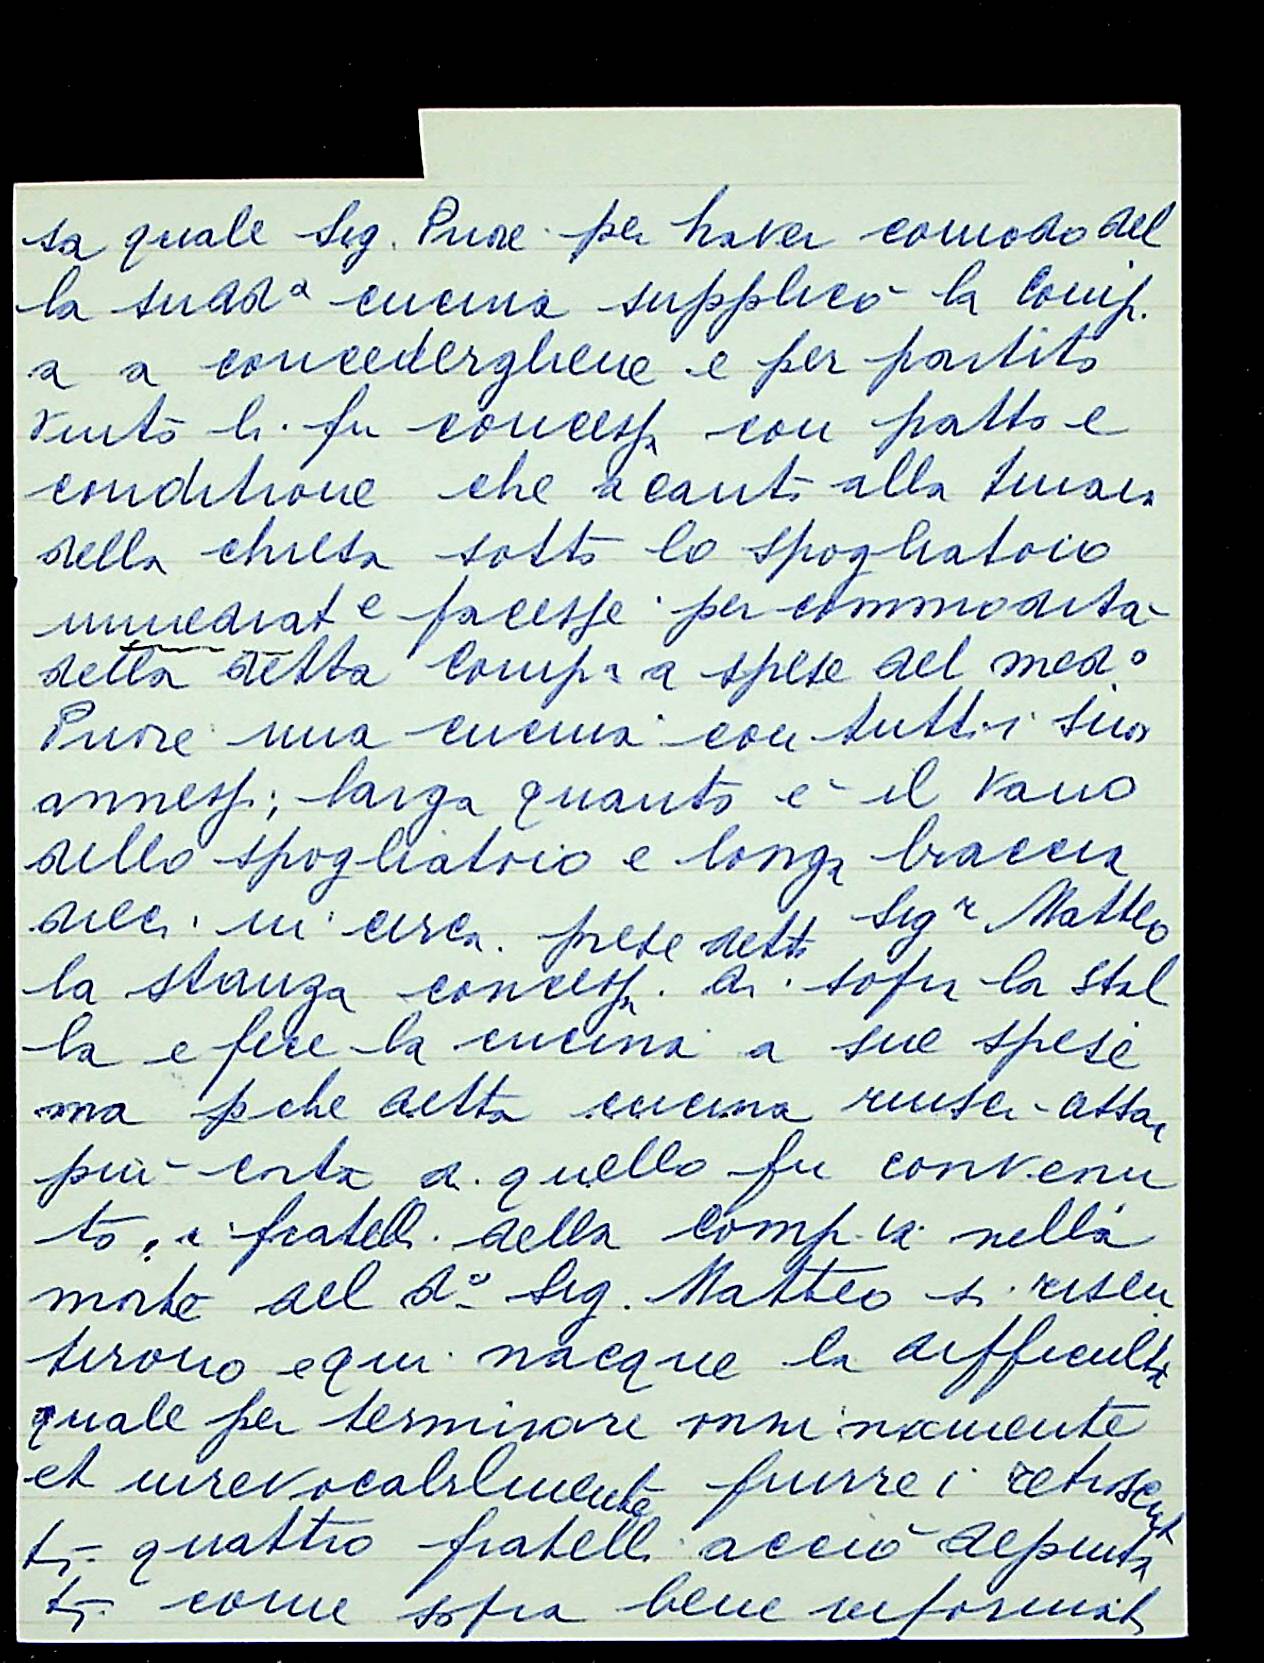 sa quale Sig. Priore per haver comodo del
la sudd.a cucina supplicò la Comp.
a a concedergliene e per partito
vinto li fu concessa con patto e
conditione che a canto alla
della chiesa sotto lo spogliatoio
immediate facesse per commodità
della detta Comp.a a spese del med.o
Priore una cucina con tutti i suoi
annessi; larga quanto è il vano
dello spogliatoio e longa braccia
dieci in circa. prese detto Sig.r Matteo
la stanza concessa di sopra la stal
la e fece la cucina a sue spese
ma pche detta cucina riuscì assai
più corta di quello fu convenu
to, i fratelli della Comp.ia nella
morte del d.o Sig. Matteo si risen
tirono e qui nacque la difficultà
quale per terminare onninamente
et irrevocabilmente furre i retroscrit
ti quattro fratelli acciò deputa
ti come sopra bene informati